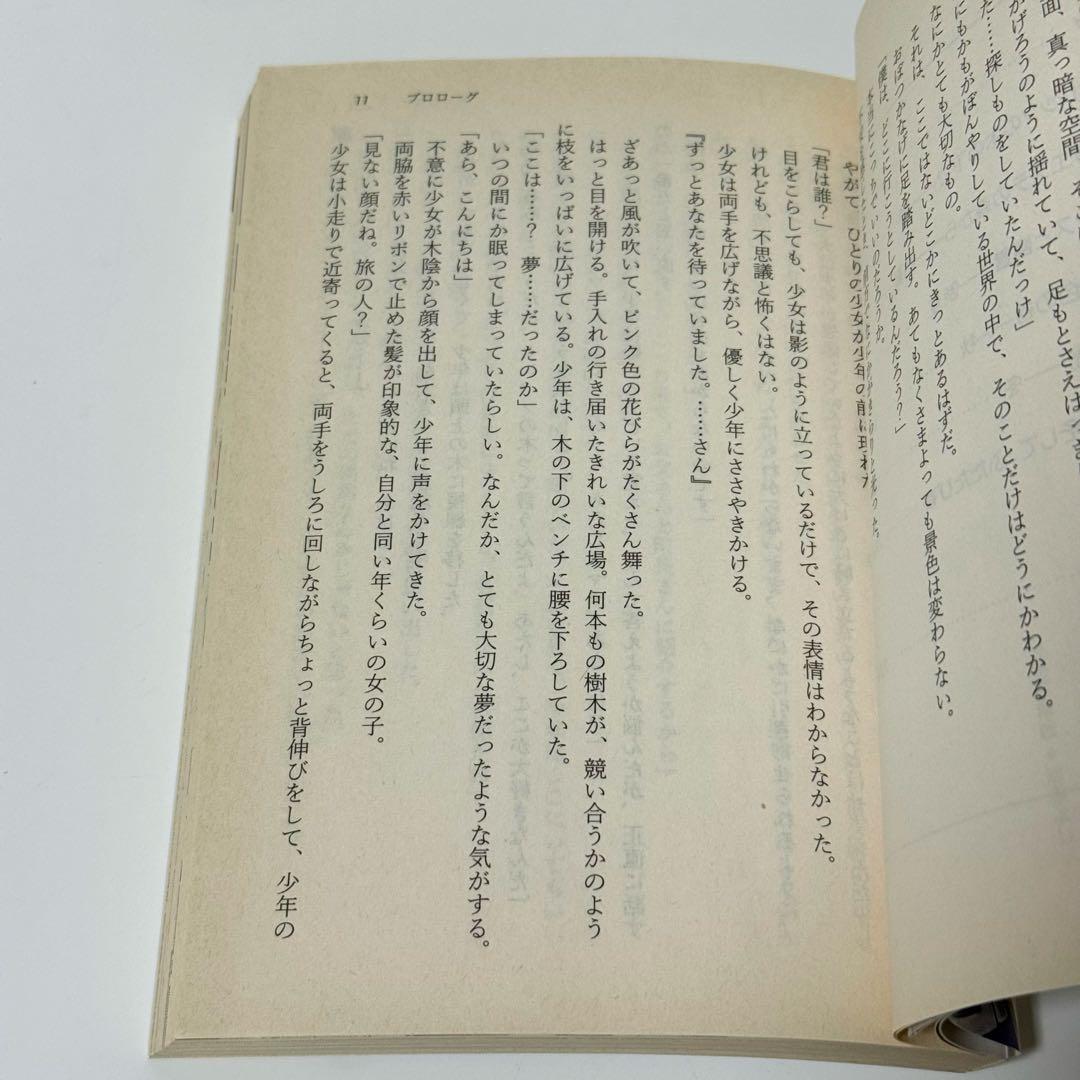 面、真っ暗な空間
がげろうのように揺れていて、足もとさえはっき
た……探しものをしていたんだっけ」
にもかもがぼんやりしている世界の中で、そのことだけはどうにかわかる。
なにかとても大切なもの。
それは、ここではないどこかにきっとあるはずだ。
おぼつかなげに足を踏み出す。あてもなくさまよっても景色は変わらない。
「僕は、どこに行こうとしているんだろう?」
11 プロローグ
やがて、ひとりの少女が少年の前に現れ
「君は誰?」
目をこらしても、少女は影のように立っているだけで、その表情はわからなかった。
けれども、不思議と怖くはない。
少女は両手を広げながら、優しく少年にささやきかける。
『ずっとあなたを待っていました。……さん』
ざあっと風が吹いて、ピンク色の花びらがたくさん舞った。
はっと目を開ける。手入れの行き届いたきれいな広場。何本もの樹木が、競い合うかのよう
に枝をいっぱいに広げている。少年は、木の下のベンチに腰を下ろしていた。
「ここは……? 夢……だったのか」
いつの間にか眠ってしまっていたらしい。なんだか、とても大切な夢だったような気がする。
「あら、こんにちは」
不意に少女が木陰から顔を出して、少年に声をかけてきた。
両脇を赤いリボンで止めた髪が印象的な、自分と同い年くらいの女の子。
「見ない顔だね。旅の人?」
少女は小走りで近寄ってくると、両手をうしろに回しながらちょっと背伸びをして、少年の